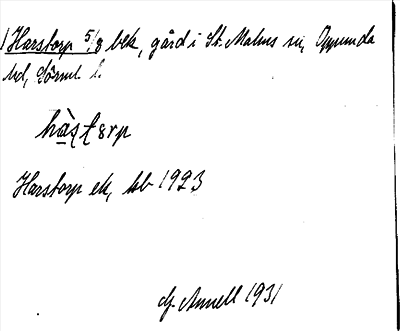 1 Harstorp 5/8 bek, gård i St. Malms sn, Oppunda
hd, Sörml. l.
hàṣṭṭərp
Harstorp ek, sb 1923
Annell 1931